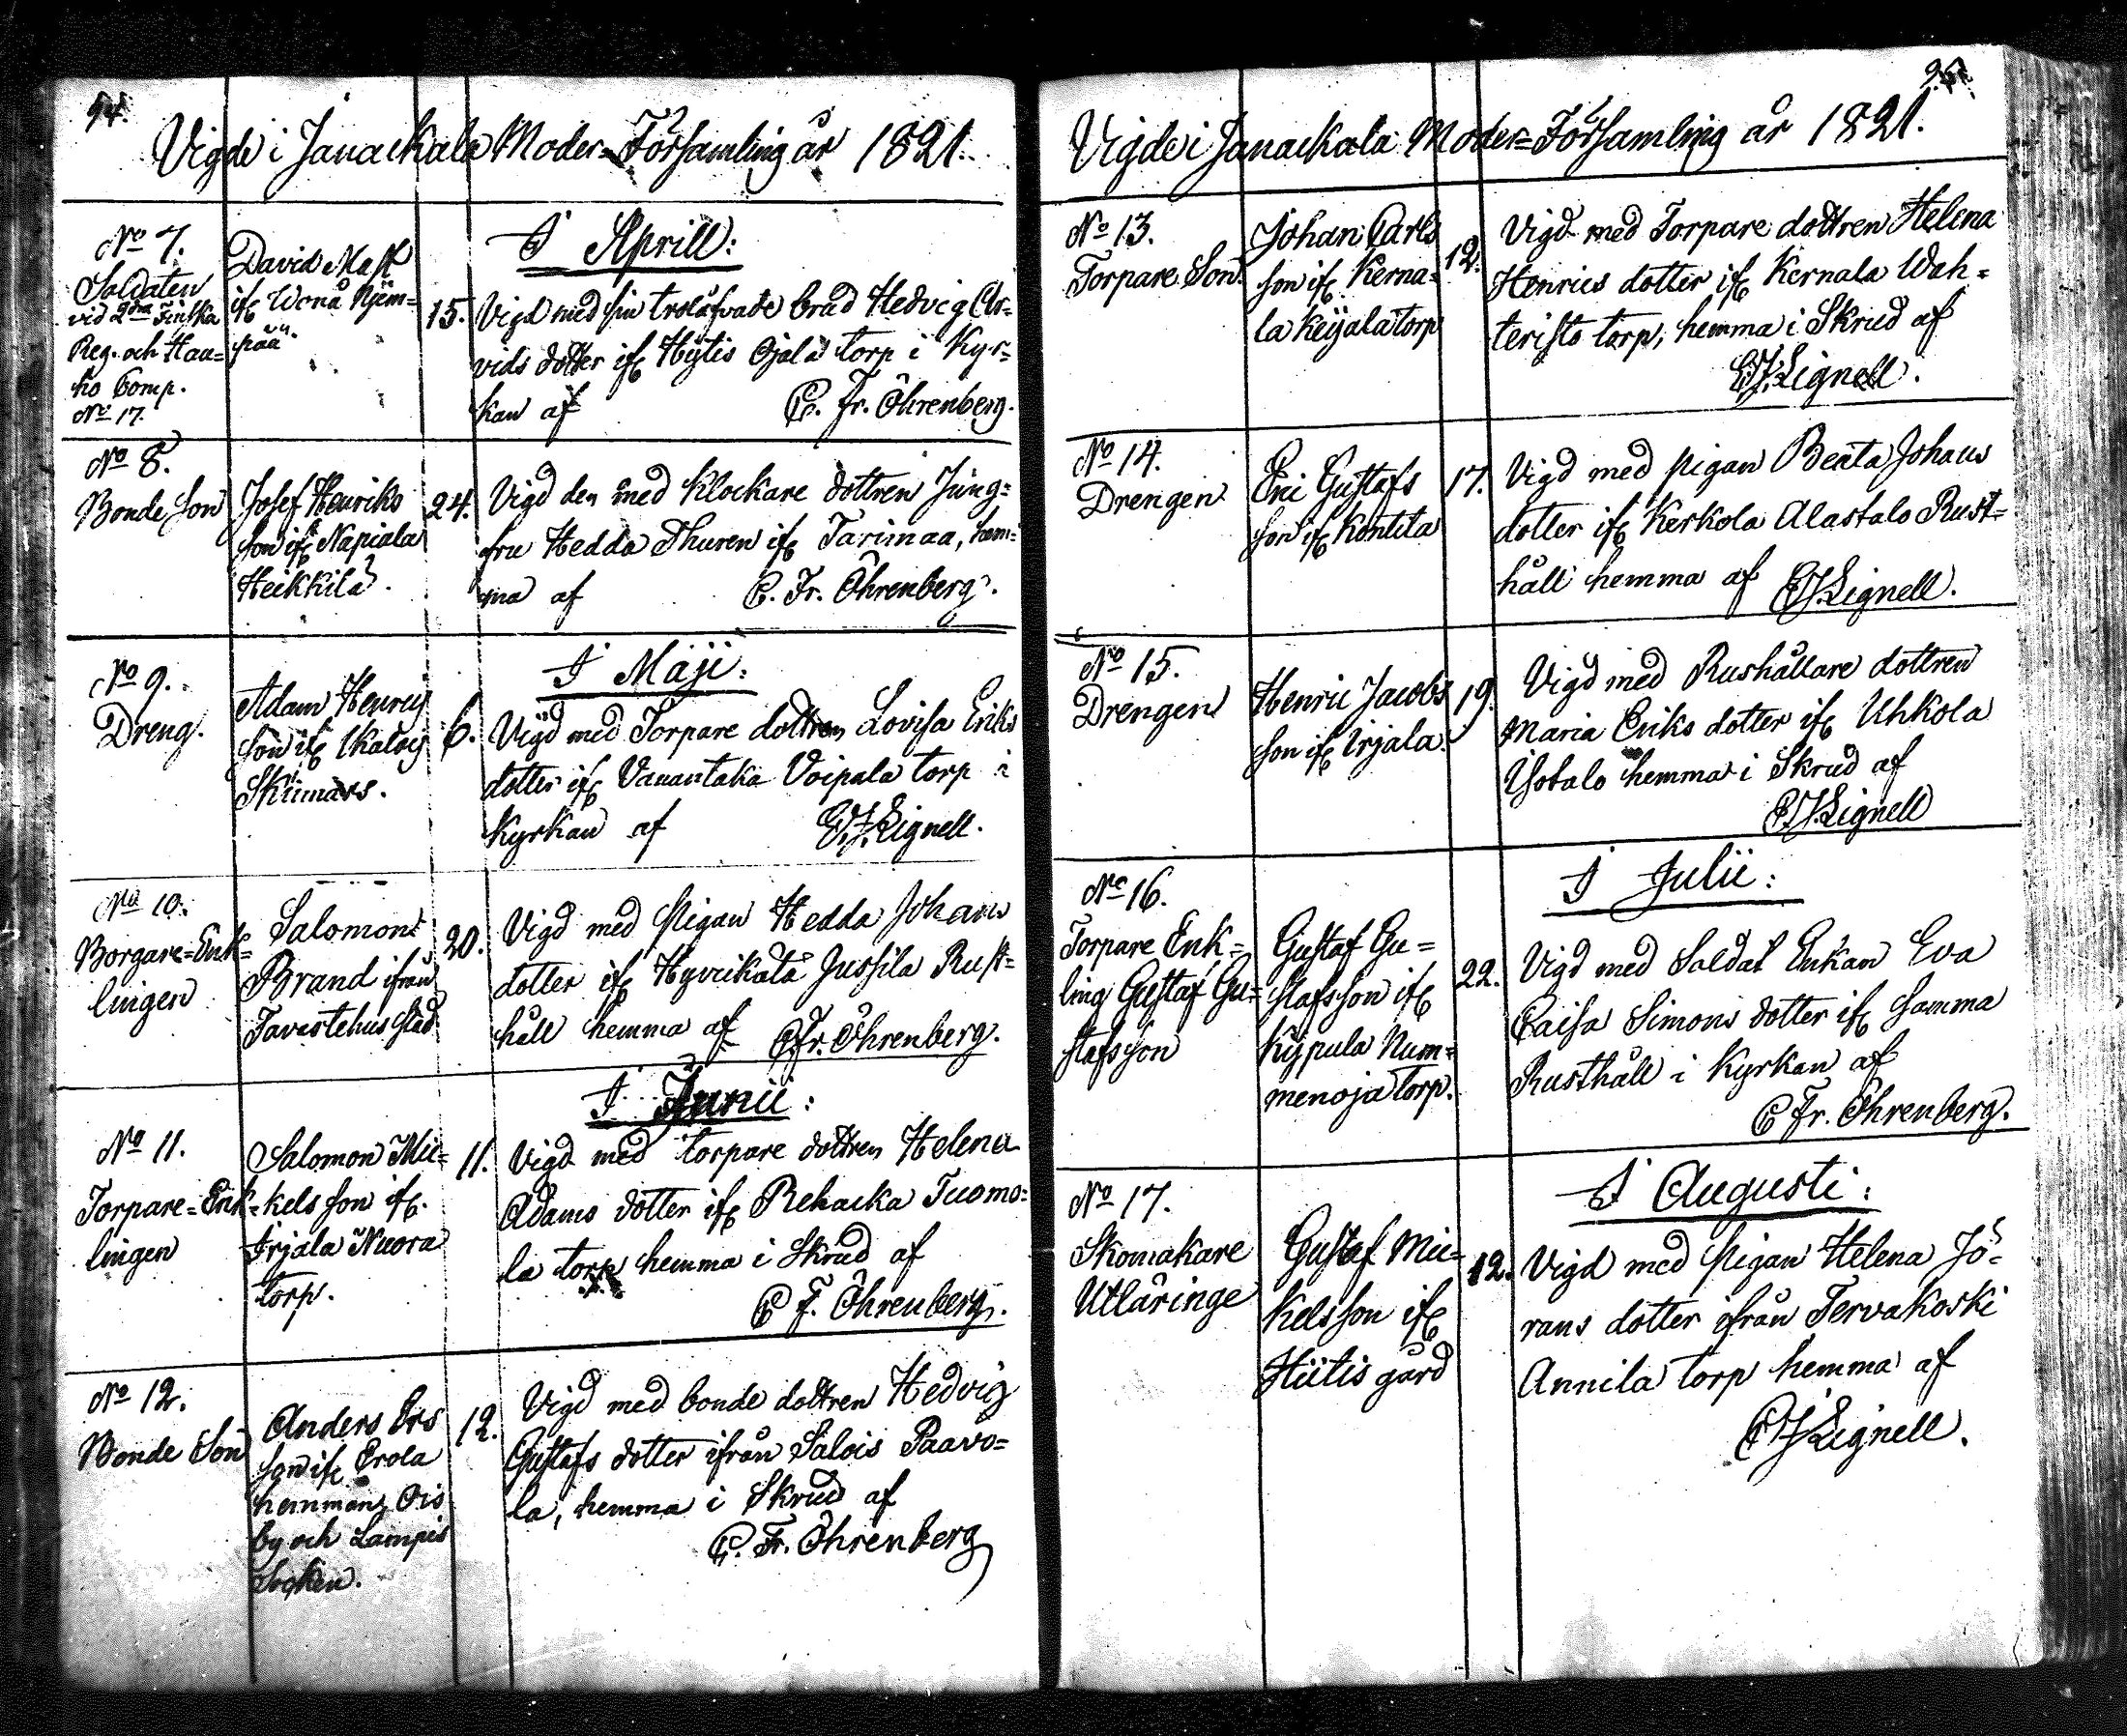 94.
Vigde i Janackala Moder=Församling år 1821.
I Aprill:
No 7.
Soldaten
vid 2dra Finska
Reg. och Haa=
ho Comp.
No 17.
David Mast
ifr Wonå Njem=
pää.
15.
Vigd med sin trolåfvade brud Hedvig Ar=
vids dotter ifr Hytis Ojala torp i Kyr=
kan af C. Fr. Öhrenberg.
No 8.
Bonde Son
Josef Henriks
son ifr Napiala
Heikkilä.
24.
Vigd den med Klockare dottren Jung=
fru Hedda Thuren ifr Tarimaa, hem=
ma af C. Fr. Öhrenberg.
I Maji:
No 9.
Dreng.
Adam Henrics
son ifr
6.
Vigd med Torpare dottren Lovisa Eriks
dotter ifr Vanantaka Voipala torp i
Kyrkan af Lignell.
No 10.
Borgare=Enk=
lingen
Salomon
Brand ifrån
Tavastehus stad
20.
Vigd med Pigan Hedda Johans
dotter ifr Hyvikälä Jussila Rust=
håll hemma af C. Fr. Öhrenberg.
I Junii:
No 11.
Torpare=Enk=
lingen
Salomon Mic=
kels son ifr
Irjala Nuora
torp.
11.
Vigd med torpare dottren Helena
Adams dotter ifr Rehacka Tuomo=
la torp hemma i Skrud af
C F. Öhrenberg.
No 12.
Bonde Son
Anders Ers
son ifr Erola
hemman, Ois
by och Lampis
Socken.
12.
Vigd med bonde dottren Hedvig
Gustafs dotter ifrån Salois Paavo=
la, hemma i Skrud af
C. Fr. Öhrenberg
95.
Vigde i Janackala Moder=Församling år 1821.
No 13.
Torpare Son
Johan Carls
son ifr Kerna=
la Keijala torp
12.
Vigd med Torpare dottren Helena
Henrics dotter ifr Kernala Wah=
teristo torp, hemma i Skrud af
Lignell.
No 14.
Drengen
Eric Gustafs
son ifr Kontila
17.
Vigd med pigan Beata Johans
dotter ifr Kerkola Alastalo Rust=
håll hemma af Lignell.
No 15.
Drengen
Henric Jacobs
son ifr Irjala.
19.
Vigd med Rushållare dottren
Maria Eriks dotter ifr Uhkola
Isotalo hemma i Skrud af
Lignell
I Julii:
No 16.
Torpare Enk=
ling Gustaf Gu=
stafsson
Gustaf Gu=
stafsson ifr
Kypula Num=
menoja torp.
22.
Vigd med Soldat Enkan Eva
Caisa Simons dotter ifr samma
Rusthåll i Kyrkan af
C Fr. Öhrenberg.
I Augusti:
No 17.
Skomakare
Utläringe
Gustaf Mic=
kelsson ifr
Hiitis gård
12.
Vigd med Pigan Helena Jö=
rans dotter ifrån Tervakoski
Annila torp hemma af
Lignell.